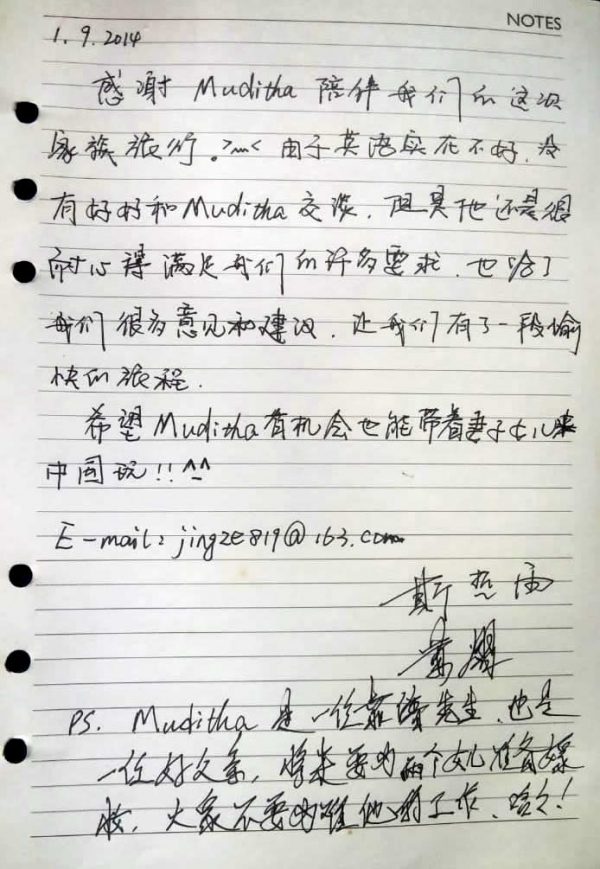 NOTES
1.9.2014
感谢 Muditha 陪伴我们的这次
家族旅行。>﹏< 由于英语实在不好,没
有好好和Muditha 交谈,但是他还是很
耐心得满足我们的许多要求,也给了
我们很多意见和建议,让我们有了一段愉
快的旅程.
希望Muditha有机会也能带着妻子女儿来
中国玩!!^_^
E-mail: jingze819@163.com
PS. Muditha 是一位靠谱先生,也是
一位好父亲,将来要为两个女儿准备嫁
妆,大家不要为难他的工作,哈哈!